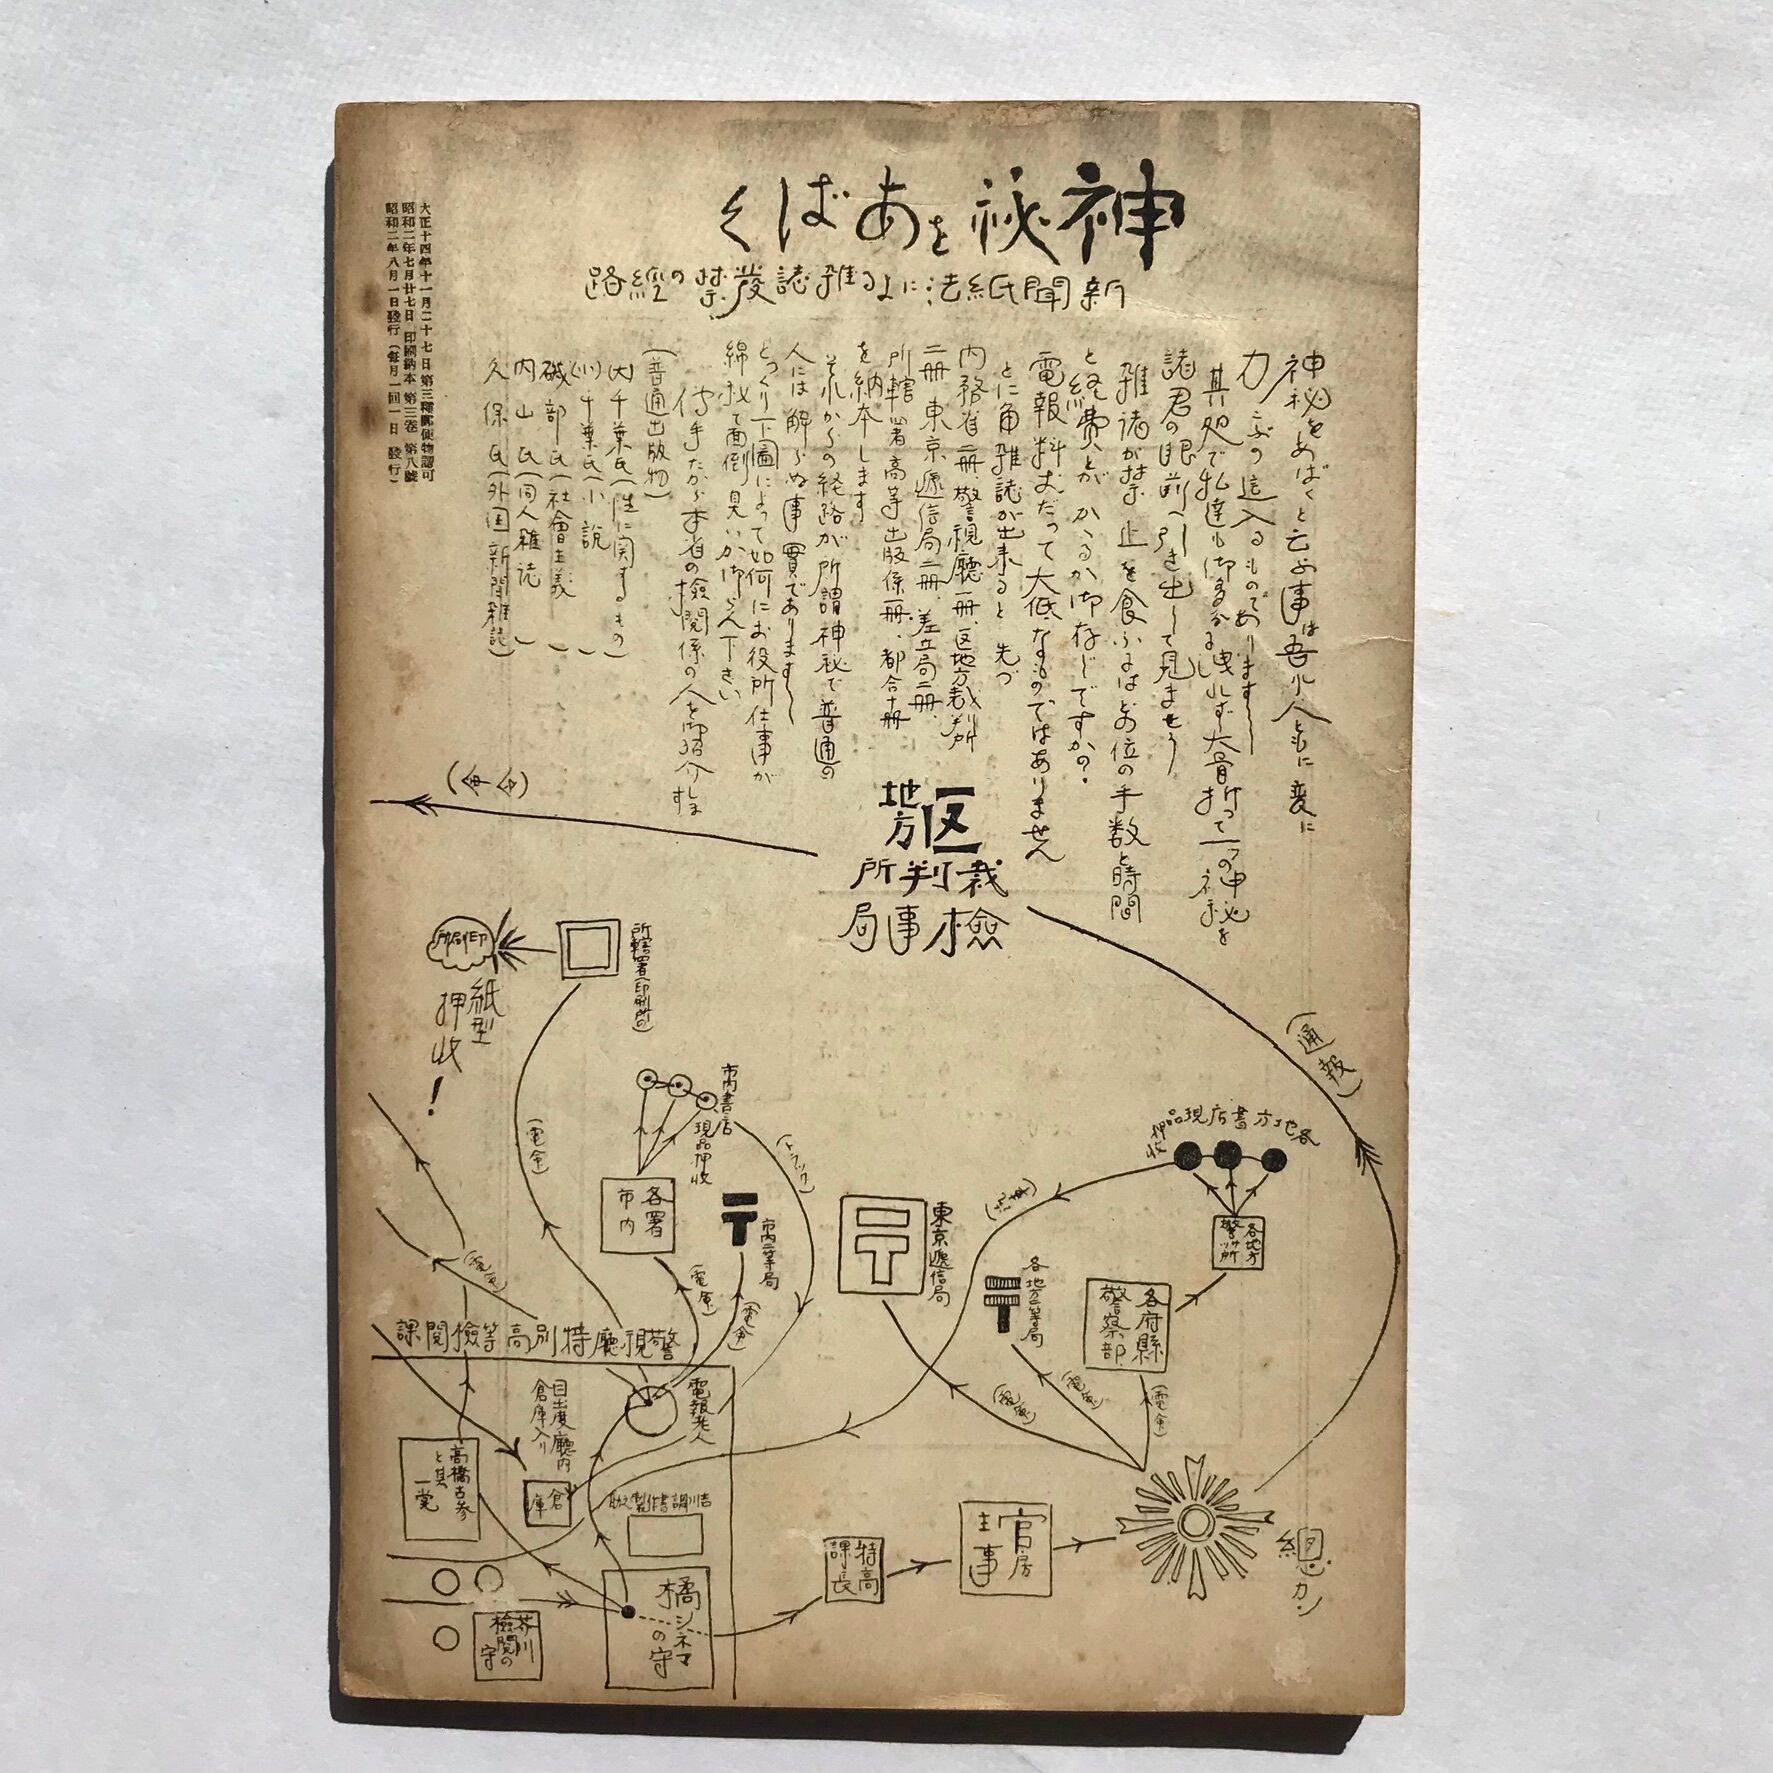 神祕をあばく
新聞紙法による雜誌發禁の經路
神秘をあばくと云ふ事は吾小人ともに変に
力こぶの這入るものであります――
其処で私達も御多分に洩れず大骨折って一つの神秘を
諸君の眼前へ引き出して見ませう
雑誌が禁止を食ふにはどの位の手数と時間
と経費とがかゝるか御存じですか?
電報料だって大低なものではありません
とに角雑誌が出来ると先づ
内務省二冊、警視廳一冊、区地方裁判所
二冊、東京逓信局二冊、差立局二冊、
所轄署高等出版係一冊、都合十冊
を納本します
それからの経路が所謂神秘で普通の
人には解らぬ事實であります――
とつくり下圖によって如何にお役所仕事が
綿密で面倒見いゝか御らん下さい
序手だから本省の檢閲係の人を御紹介しま
す
(普通出版物)
(大)千葉氏(性に関するもの)
(小)千葉氏(小説)
磯部氏(社會主義)
内山氏(同人雜誌)
久保氏(外国新聞雑誌)
大正十四年十一月二十七日第三種郵便物認可
昭和二年七月廿七日印刷納本 第三卷 第八號
昭和二年八月一日發行(毎月一回一日發行)
区
地方
裁判所
檢事局
(命令)
(通報)
所轄署(印刷所の)
印刷所
紙型
押収!
(電令)
市内書店
現品押収
(トラック)
各署
市内
市内二等局
(電命)
(電命)
東京逓信局
各地方二等局
各地方書店現品押收
各地方
警サツ所
各府縣
警察部
(電命)
(電命)
(電命)
警視廳特別高等檢閲課
電報老人
目出度廳内
倉庫入り
倉庫
高橋古参
と其
一党
吉川調書作製之助
橘
シネマ
の守
芥川
檢閲の
守
特高
課長
官房
主事